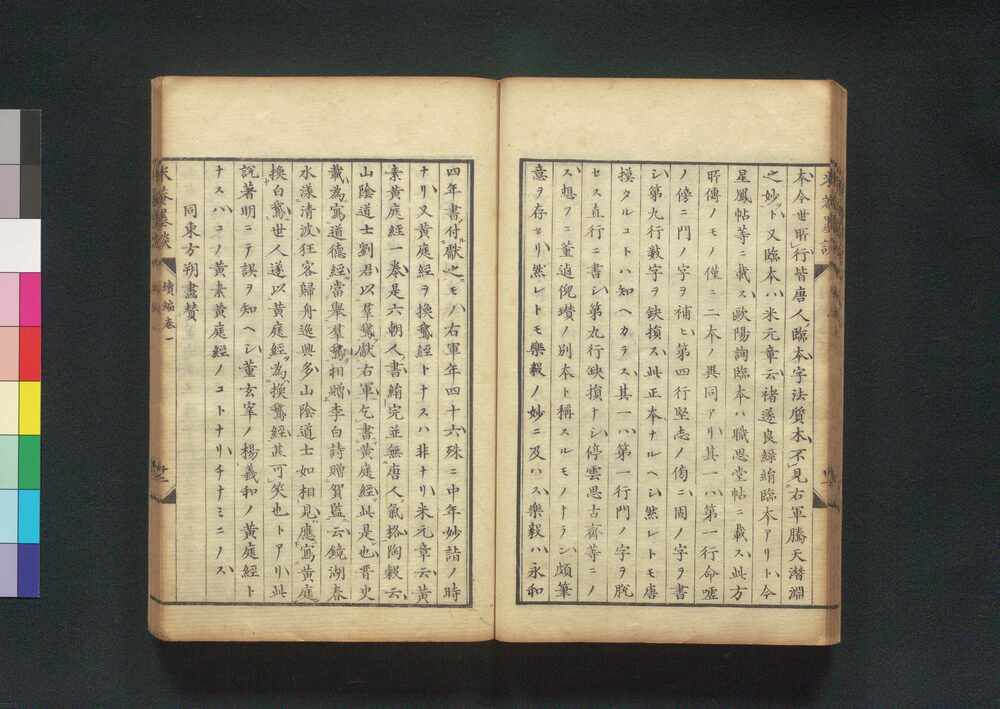 本今世所行皆唐人臨本字法質木不見右軍騰天潜淵
之妙ト又臨本ハ米元章云褚遂良緑綃臨本アリト今
星鳳帖等ニ載ス欧陽詢臨本ハ職思堂帖ニ載ス此方
所傳ノモノ僅ニ二本ノ異同アリ其一ハ第一行命噓
ノ傍ニ門ノ字ヲ補ヒ第四行堅志ノ傍ニ周ノ字ヲ書
シ第九行穀字ヲ鈌損ス此正本ナルヘシ然レトモ唐
摸タルコトハ知ヘカラス其一ハ第一行門ノ字ヲ脱
セス直行ニ書シ第九行鈌損ナシ停雲思古齋等ニノ
ス想フニ董逌倪瓉ノ別本ト稱スルモノナラン頗筆
意ヲ存セリ然レトモ樂毅ノ妙ニ及ハス樂毅ハ永和
四年書付獻之モノハ右軍年四十六殊ニ中年妙詣ノ時
ナリ又黄庭経ヲ換鵞経トナスハ非ナリ米元章云黄
素黄庭経一巻是六朝人書絹完並無唐人氣格陶穀云
山陰道士劉君以羣鵞獻右軍乞書黄庭経此是也晋史
載為寫道徳経當舉羣鵞相贈李白詩贈賀監云鏡湖春
水漾清波狂客歸舟逸興多山陰道士如相見應寫黄庭
換白鵞世人遂以黄庭経為換鵞経甚可笑也トアリ此
説著明ニテ誤ヲ知ヘシ董玄宰ノ楊羲和ノ黄庭経ト
ナスハコノ黄素黄庭経ノコトナリチナミニノス
同東方朔畫賛
米菴墨談
續編巻一